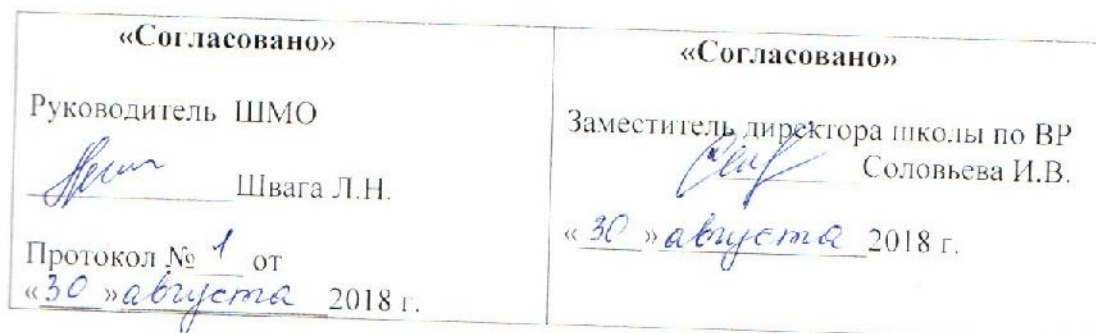 «Согласовано»
Руководитель ШМО
Швага Л.Н.
Протокол № 1 от
«30» августа 2018 г.
«Согласовано»
Заместитель директора школы по ВР
Соловьева И.В.
«30» августа 2018 г.